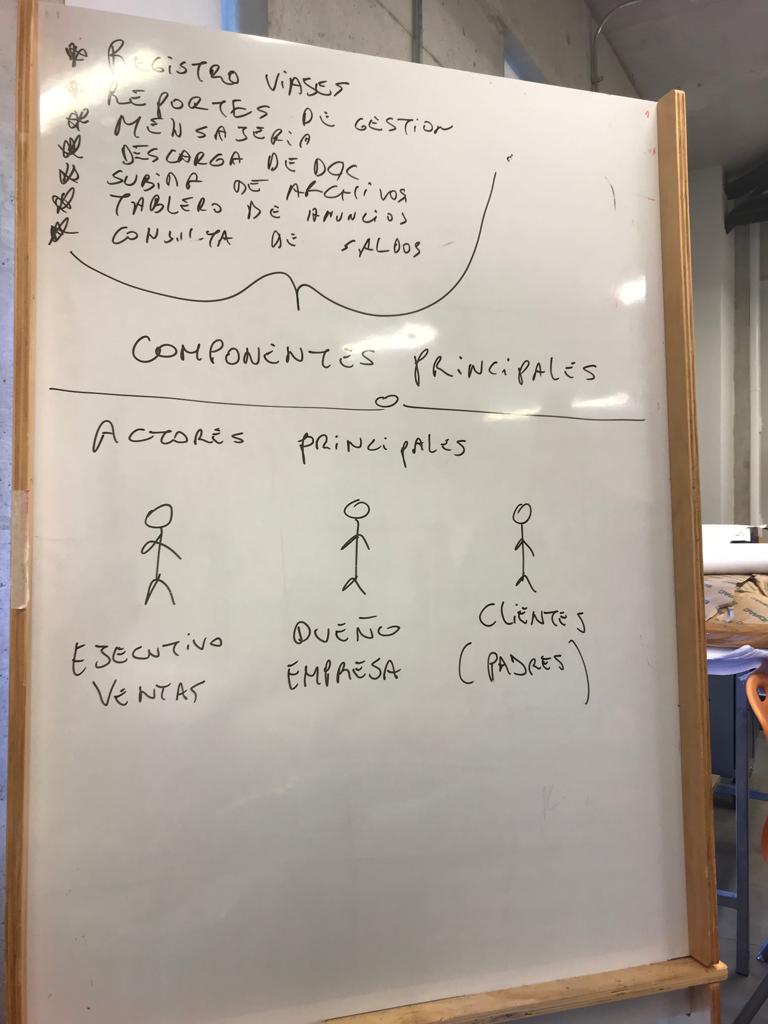 * REGISTRO VIAJES
* REPORTES DE GESTION
* MENSAJERIA
* DESCARGA DE DOC
* SUBIDA DE ARCHIVOS
* TABLERO DE ANUNCIOS
* CONSULTA DE SALDOS
COMPONENTES PRINCIPALES
ACTORES PRINCIPALES
EJECUTIVO
VENTAS
DUEÑO
EMPRESA
CLIENTES
(PADRES)